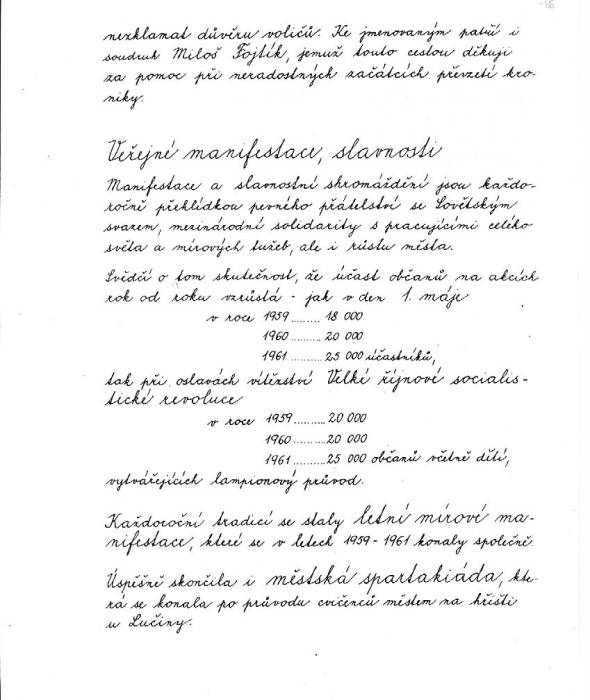 -16
nezklamat důvěru voličů. Ke jmenovaným patří i
soudruh Miloš Fojtík, jemuž touto cestou děkuji
za pomoc při neradostných začátcích převzetí kro-
niky.
Veřejné manifestace, slavnosti
Manifestace a slavnostní shromáždění jsou každo-
ročně přehlídkou pevného přátelství se Sovětským
svazem, mezinárodní solidarity s pracujícími celého
světa a mírových tužeb, ale i růstu města.
Svědčí o tom skutečnost, že účast občanů na akcích
rok od roku vzrůstá - jak v den 1. máje
v roce 1959 ......... 18 000
1960 ......... 20 000
1961 ......... 25 000 účastníků,
tak při oslavách vítězství Velké říjnové socialis-
tické revoluce
v roce 1959 .......... 20 000
1960 .......... 20 000
1961 .......... 25 000 občanů včetně dětí,
vytvářejících lampionový průvod.
Každoroční tradicí se staly letní mírové ma-
nifestace, které se v letech 1959 - 1961 konaly společně.
Úspěšně skončila i městská spartakiáda, kte-
rá se konala po průvodu cvičenců městem na hřišti
u Lučiny.